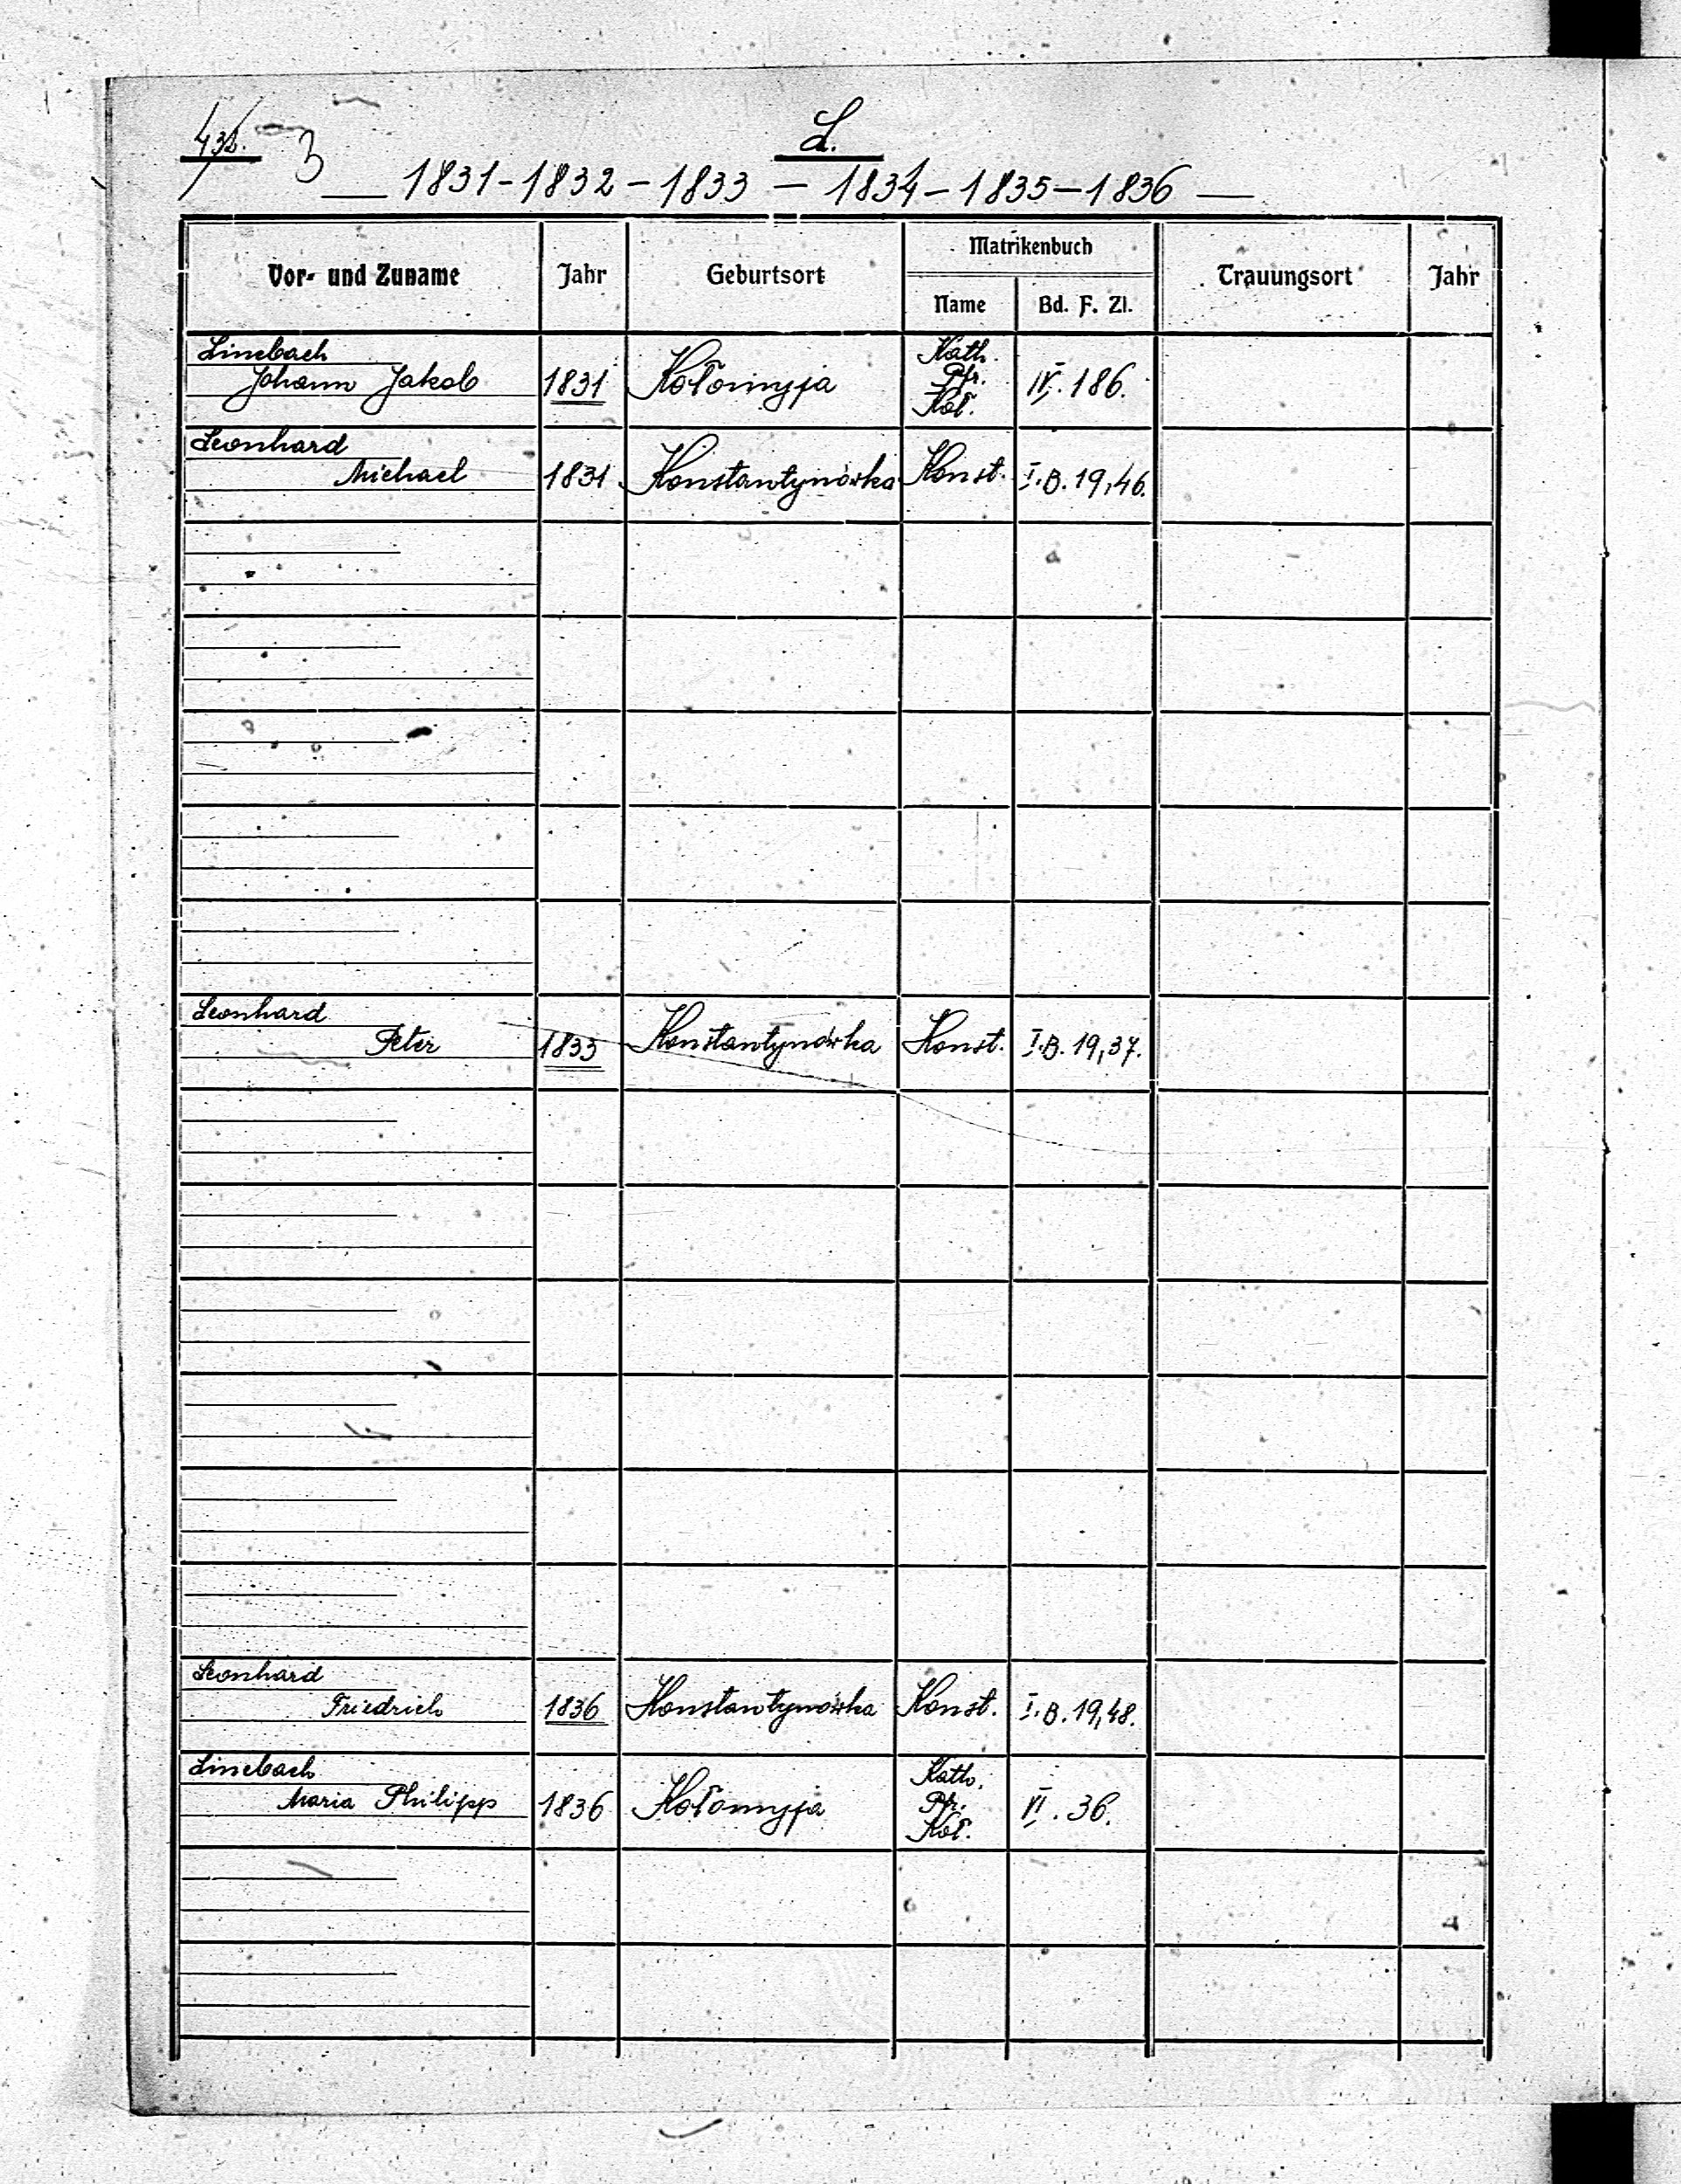 432. 3 L.
1831-1832-1833 - 1834-1835-1836
Vor- und Zuname Jahr Geburtsort Matrikenbuch Trauungsort Jahr
Name Bd. F. Zl.
Linebach Kath.
Johann Jakob 1831 Kołomyja Pfr. IV. 186.
Koł.
Leonhard
Michael 1831 Konstantynówka Konst. I.B. 19,46.
Leonhard
Peter 1833 Konstantynówka Konst. I.B. 19,37.
Leonhard
Friedrich 1836 Konstantynówka Konst. I.B. 19,48.
Linebach Kath.
Maria Philipp 1836 Kołomyja Pfr. VI. 36.
Koł.